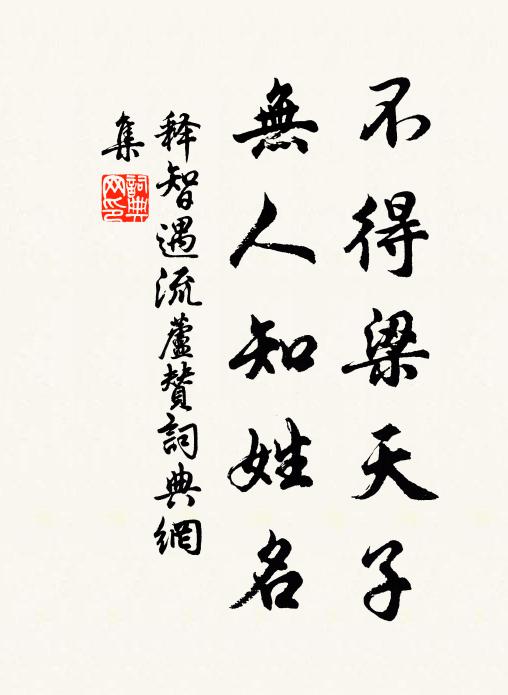 不得梁天子
無人知姓名
释智遇流蘆贊詞典網
集
詞典網印